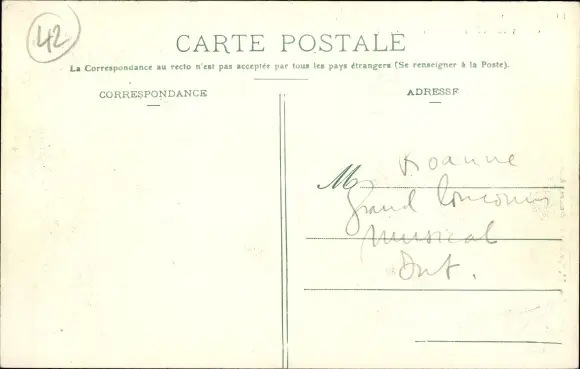 42
CARTE POSTALE
La Correspondance au recto n'est pas acceptée par tous les pays étrangers (Se renseigner à la Poste).
CORRESPONDANCE
ADRESSE
Roanne
M
Grand Concours
Musical